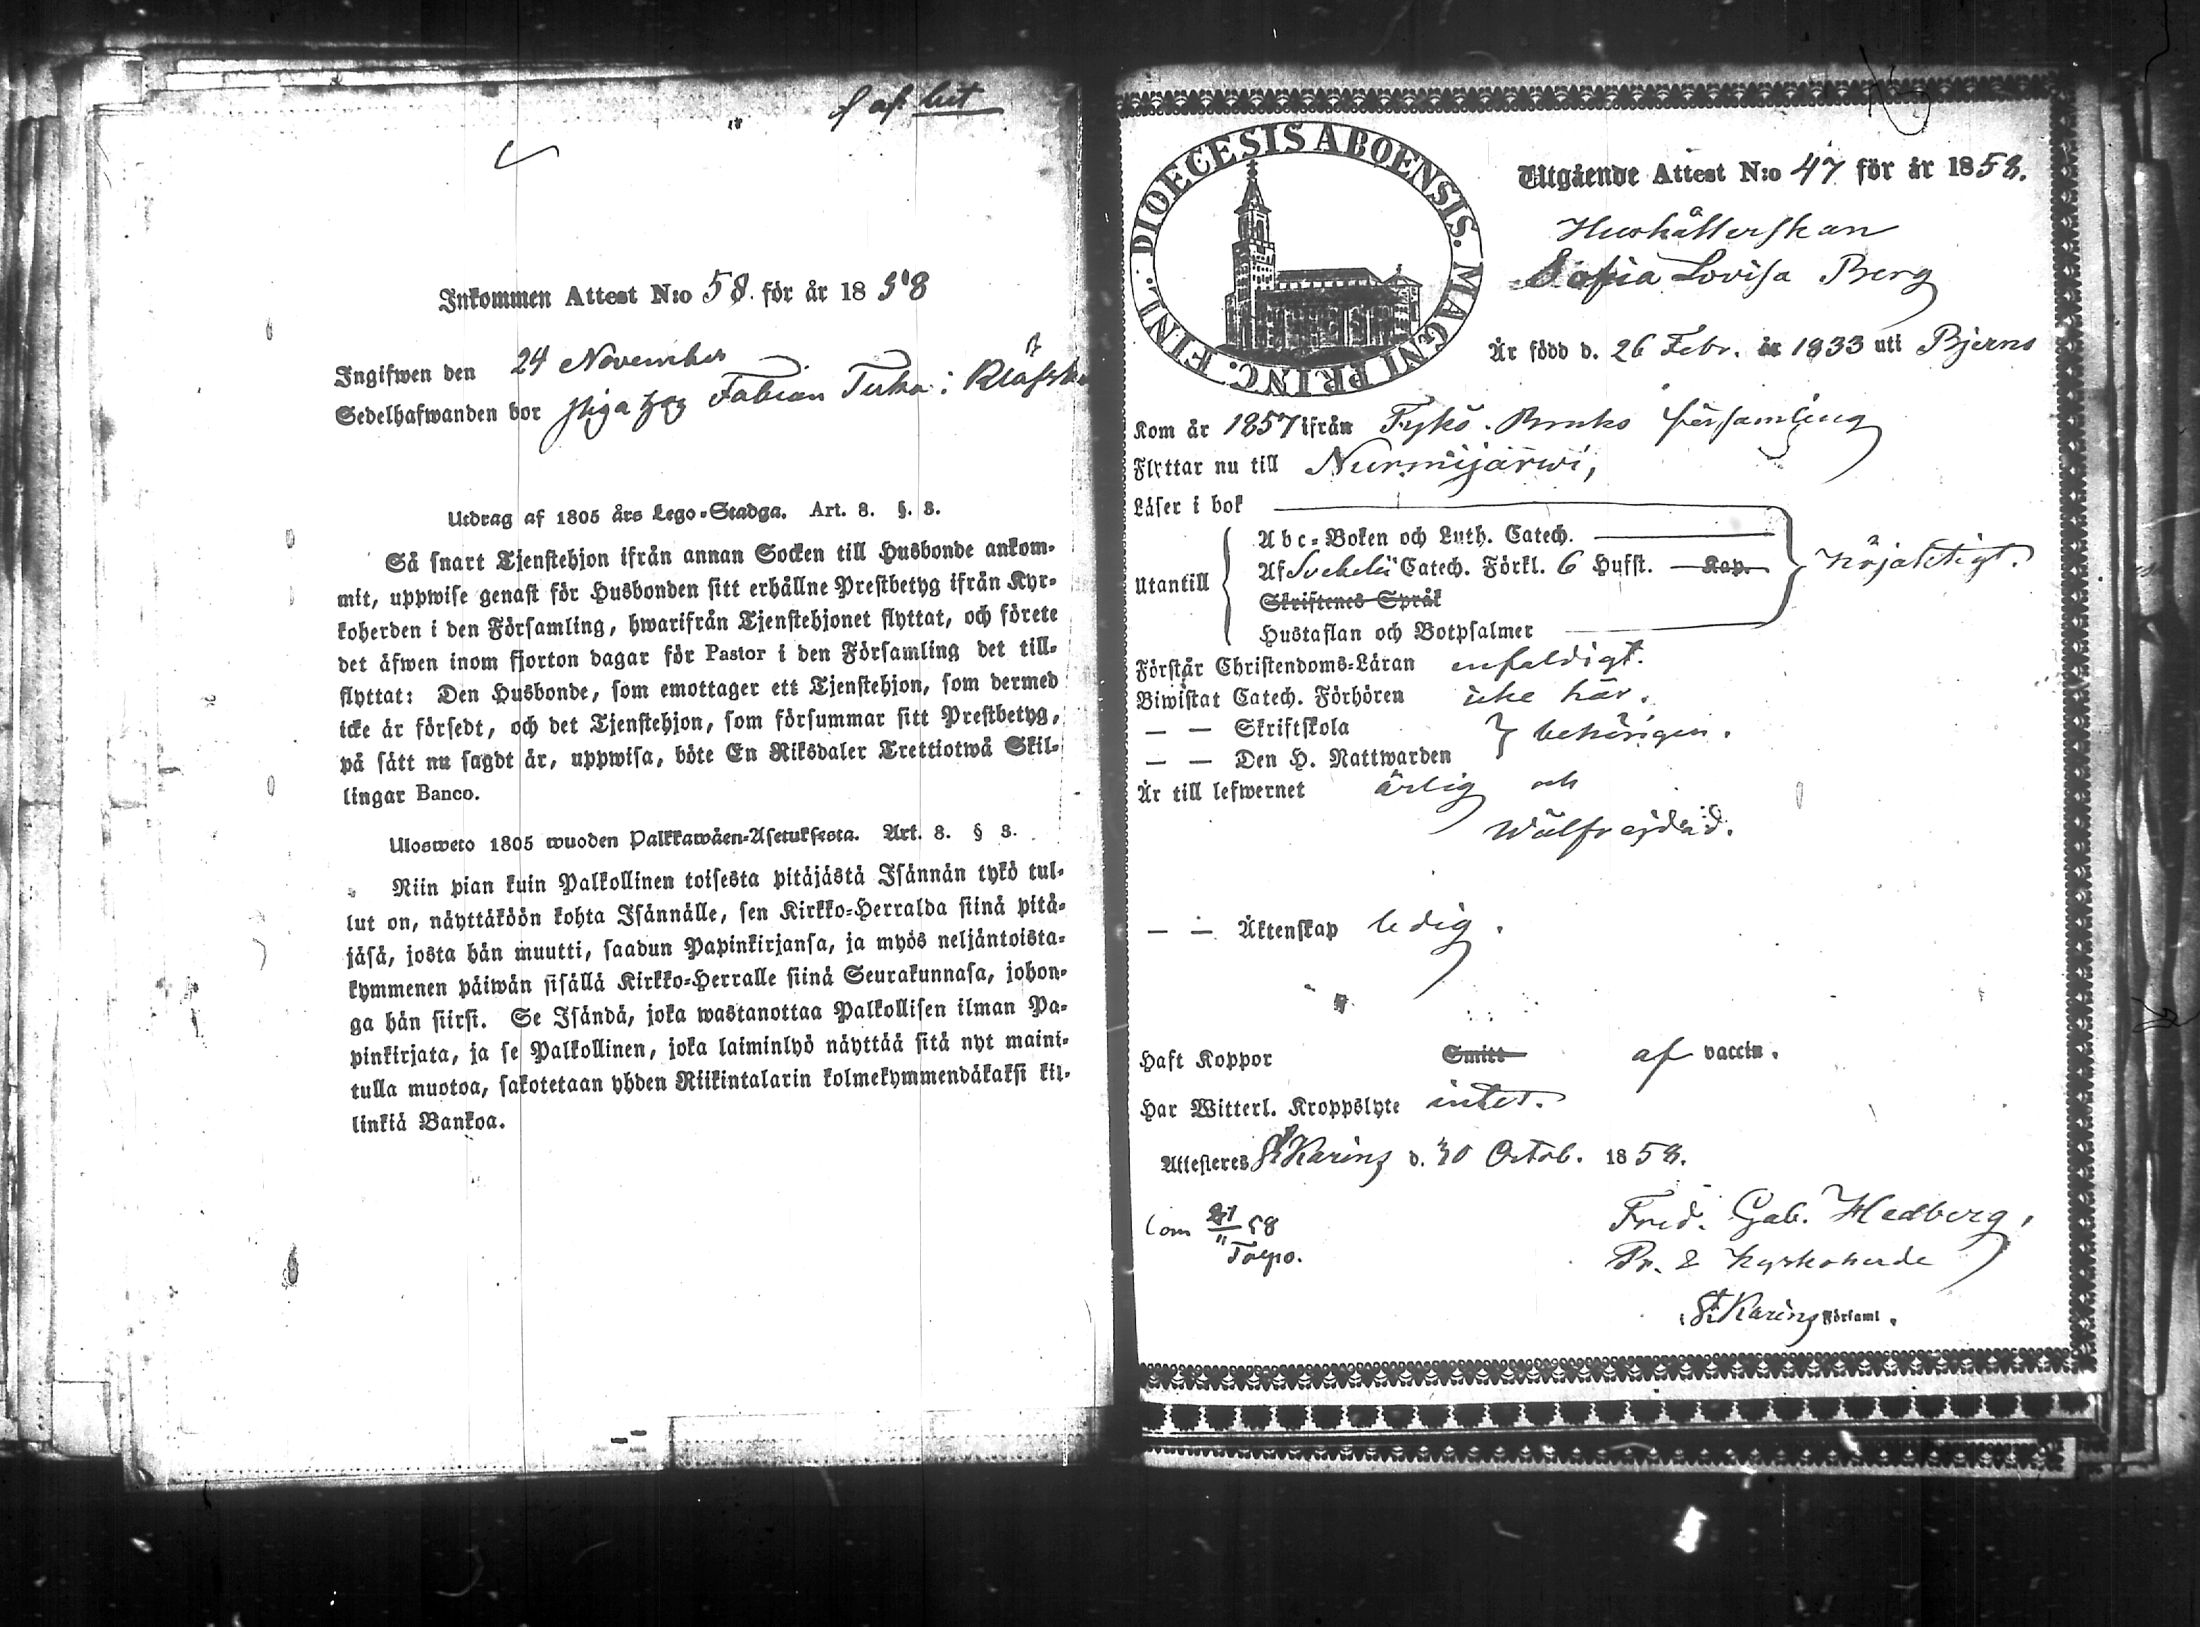 af
Inkommen Attest N:o 58. för år 1858
Ingifwen den 24 November
Sedelhafwanden bor Fabian i
Utdrag af 1805 års Lego-Stadga. Art. 8. §. 3.
Så snart Tjenstehjon ifrån annan Socken till Husbonde ankom-
mit, uppwise genast för Husbonden sitt erhållne Prestbetyg ifrån Kyr-
koherden i den Församling, hwarifrån Tjenstehjonet flyttat, och förete
det äfwen inom fjorton dagar för Pastor i den Församling det till-
flyttat: Den Husbonde, som emottager ett Tjenstehjon, som dermed
icke är försedt, och det Tjenstehjon, som försummar sitt Prestbetyg,
på sätt nu sagdt är, uppwisa, böte En Riksdaler Trettiotwå Skil-
lingar Banco.
Ulosweto 1805 wuoden Palkkawäen-Asetuksesta. Art. 8. § 3.
Niin pian kuin Palkollinen toisesta pitäjästä Isännän tykö tul-
lut on, näyttäköön kohta Isännälle, sen Kirkko-Herralda siinä pitä-
jäsä, josta hän muutti, saadun Papinkirjansa, ja myös neljäntoista-
kymmenen päiwän sisällä Kirkko-Herralle siinä Seurakunnasa, johon-
ga hän siirsi. Se Isändä, joka wastanottaa Palkollisen ilman Pa-
pinkirjata, ja se Palkollinen, joka laiminlyö näyttää sitä nyt maini-
tulla muotoa, sakotetaan yhden Riikintalarin kolmekymmendäkaksi kil-
linkiä Bankoa.
DIOECESIS ABOENSIS. MAGNI PRINC. FINL.
Utgående Attest N:o 47 för år 1858.
Hushållerskan
Sofia Lovisa Berg
Är född d. 26 Febr. år 1833 uti Bjerno
Kom år 1857 ifrån Tykö Bruks församling
Flyttar nu till Nurmijärwi,
Läser i bok
Utantill
Abc-Boken och Luth. Catech.
Af Svebelii Catech. Förkl. 6 Hufst. Kap.
Skriftenes Språk
Hustaflan och Botpsalmer
nöjaktigt.
Förstår Christendoms-Läran enfaldigt.
Biwistat Catech. Förhören icke här.
— — Skriftskola
— — Den H. Nattwarden
behörigen.
Är till lefwernet ärlig och
wälfrejdad.
— — Äktenskap ledig.
Haft Koppor Smitt af vaccin.
Har Witterl. Kroppslyte intet.
Attesteres St Karins d. 30 Octob. 1858.
Fred. Gab. Hedberg,
Pr. & Kyrkoherde
St Karins Församl.
58